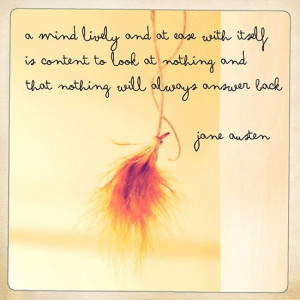 a mind lively and at ease with itself
is content to look at nothing and
that nothing will always answer back
jane austen